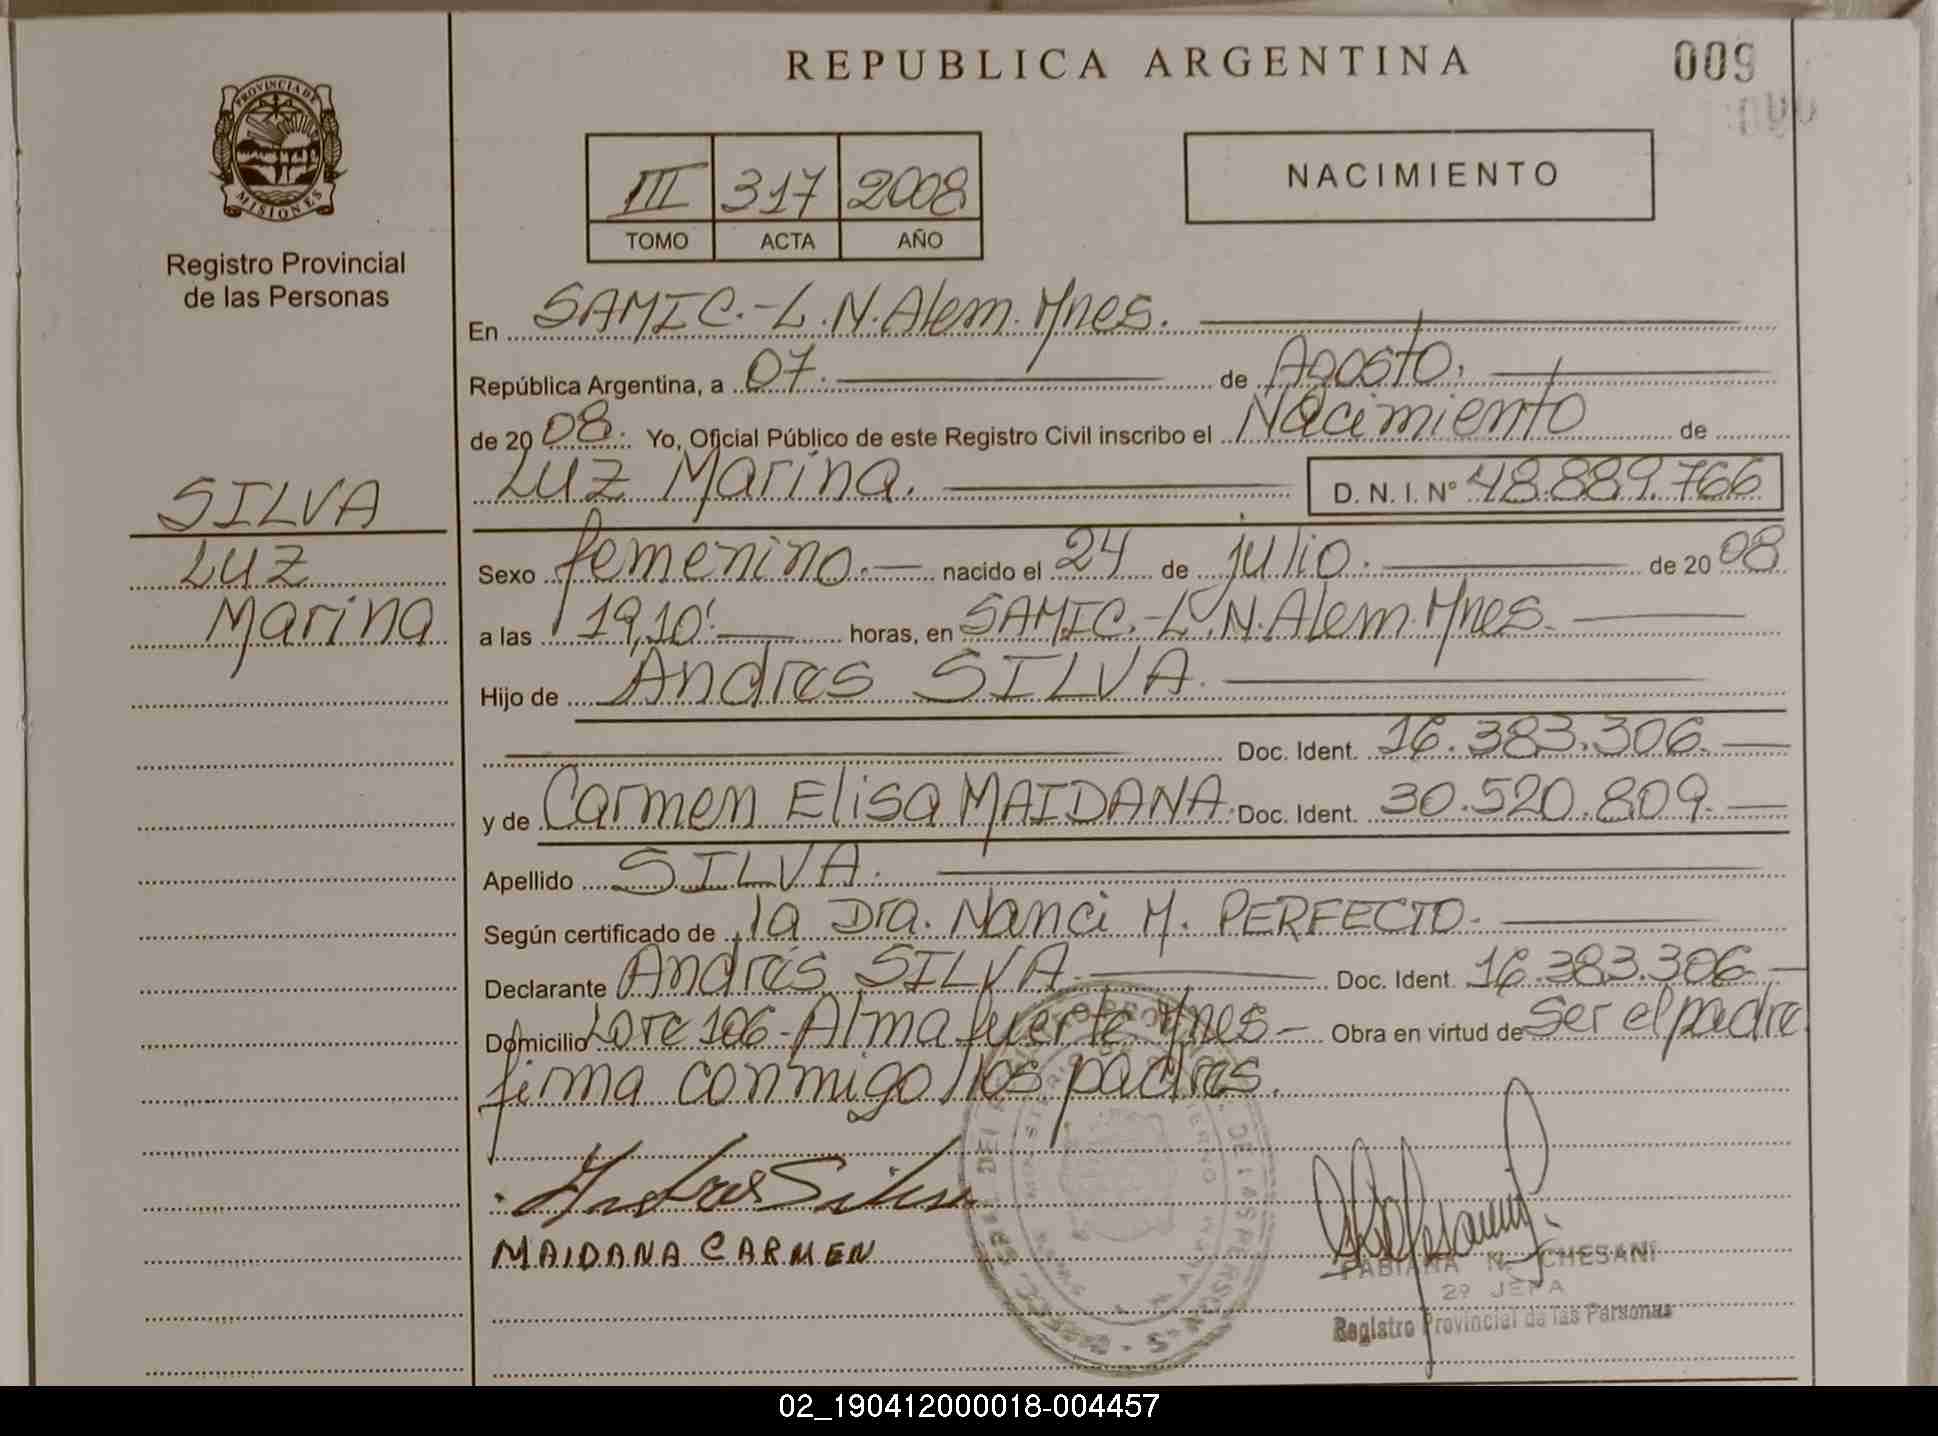 REPUBLICA ARGENTINA
009
PROVINCIA DE
MISIONES
Registro Provincial
de las Personas
III 317 2008
TOMO ACTA AÑO
NACIMIENTO
En SAMIC.-L.N.Alem.Mnes.
República Argentina, a 07. de Agosto.
de 20 08. Yo, Oficial Público de este Registro Civil inscribo el Nacimiento de
Luz Marina. D. N. I. Nº 48.889.766
SILVA
Luz
Marina
Sexo femenino.- nacido el 24 de julio. de 20 08
a las 19,10'. horas, en SAMIC.-L.N.Alem.Mnes.
Hijo de Andres SILVA.
Doc. Ident. 16.383.306.
y de Carmen Elisa MAIDANA. Doc. Ident. 30.520.809.
Apellido SILVA.
Según certificado de la Dra. Nanci M. PERFECTO.
Declarante Andrés SILVA. Doc. Ident. 16.383.306
Domicilio Lote 106-Alma fuerte.Mnes- Obra en virtud de Ser el padre
firma conmigo los padres.
Andres Silva
MAIDANA CARMEN
FABIANA N. CHESANI
2º JEFA
Registro Provincial de las Personas
02_190412000018-004457